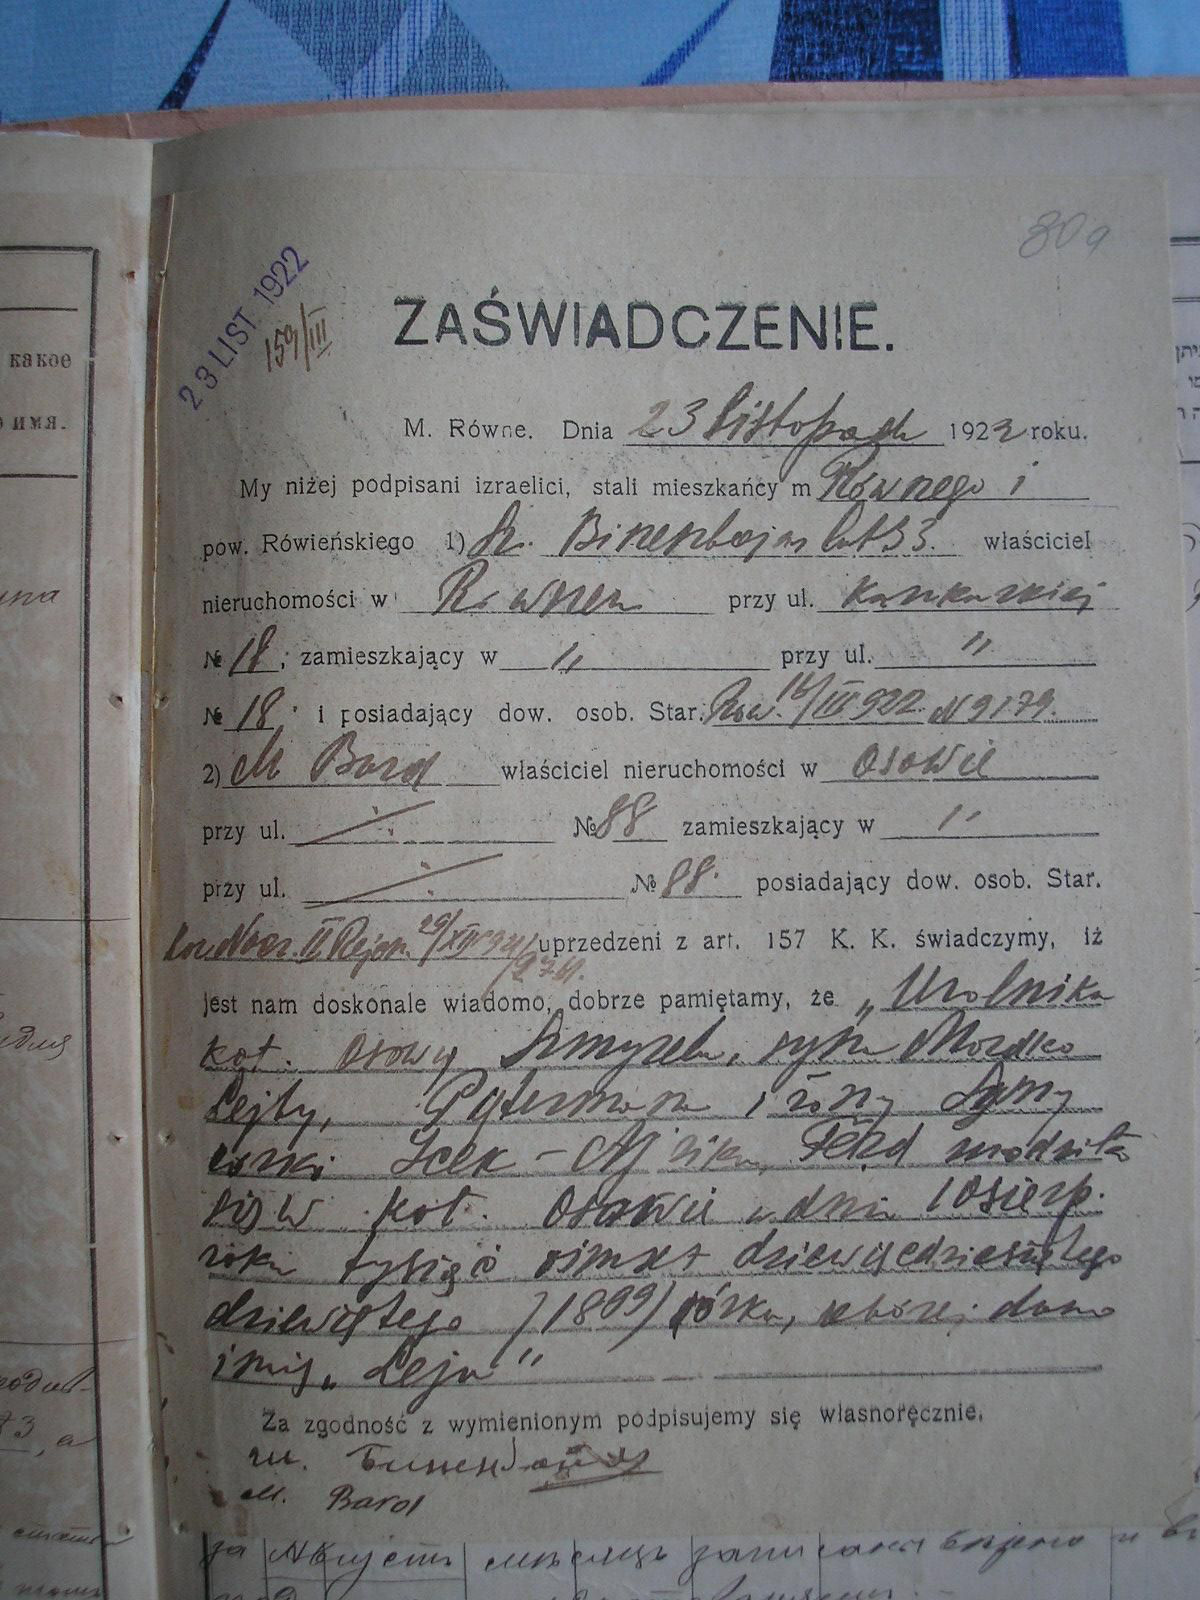 80a
23 LIST 1922
159/III
ZAŚWIADCZENIE.
M. Równe. Dnia 23 Listopada 1922 roku.
My niżej podpisani izraelici, stali mieszkańcy m Równego i
pow. Rówieńskiego 1) Sz. Binenbojm lat 53. właściciel
nieruchomości w Równem przy ul.
№ 18, zamieszkający w " przy ul. "
№ 18, i posiadający dow. osob. Star. Rów. 16/III 922 N 9179.
2) M Bard właściciel nieruchomości w Osowie
przy ul. ⁒ № 88 zamieszkający w "
przy ul. ⁒ № 88. posiadający dow. osob. Star.
II Rejon. 29/XII 921 uprzedzeni z art. 157 K. K. świadczymy, iż
jest nam doskonale wiadomo, dobrze pamiętamy, że „U rolnika
kol. Osowy Szmyela, syna Mordko
Lejby, i żony
córki Icek - Ajzika, urodziła
się w kol. Osowie w dniu 10 sierp.
roku tysiąc ośmset dziewięćdziesiątego
dziewiątego /1899/ córka, której dano
imię „Leja"
Za zgodność z wymienionym podpisujemy się własnoręcznie.
Ш. Биненбойм
M. Bard
какое
имя.
за
месяцъ записана